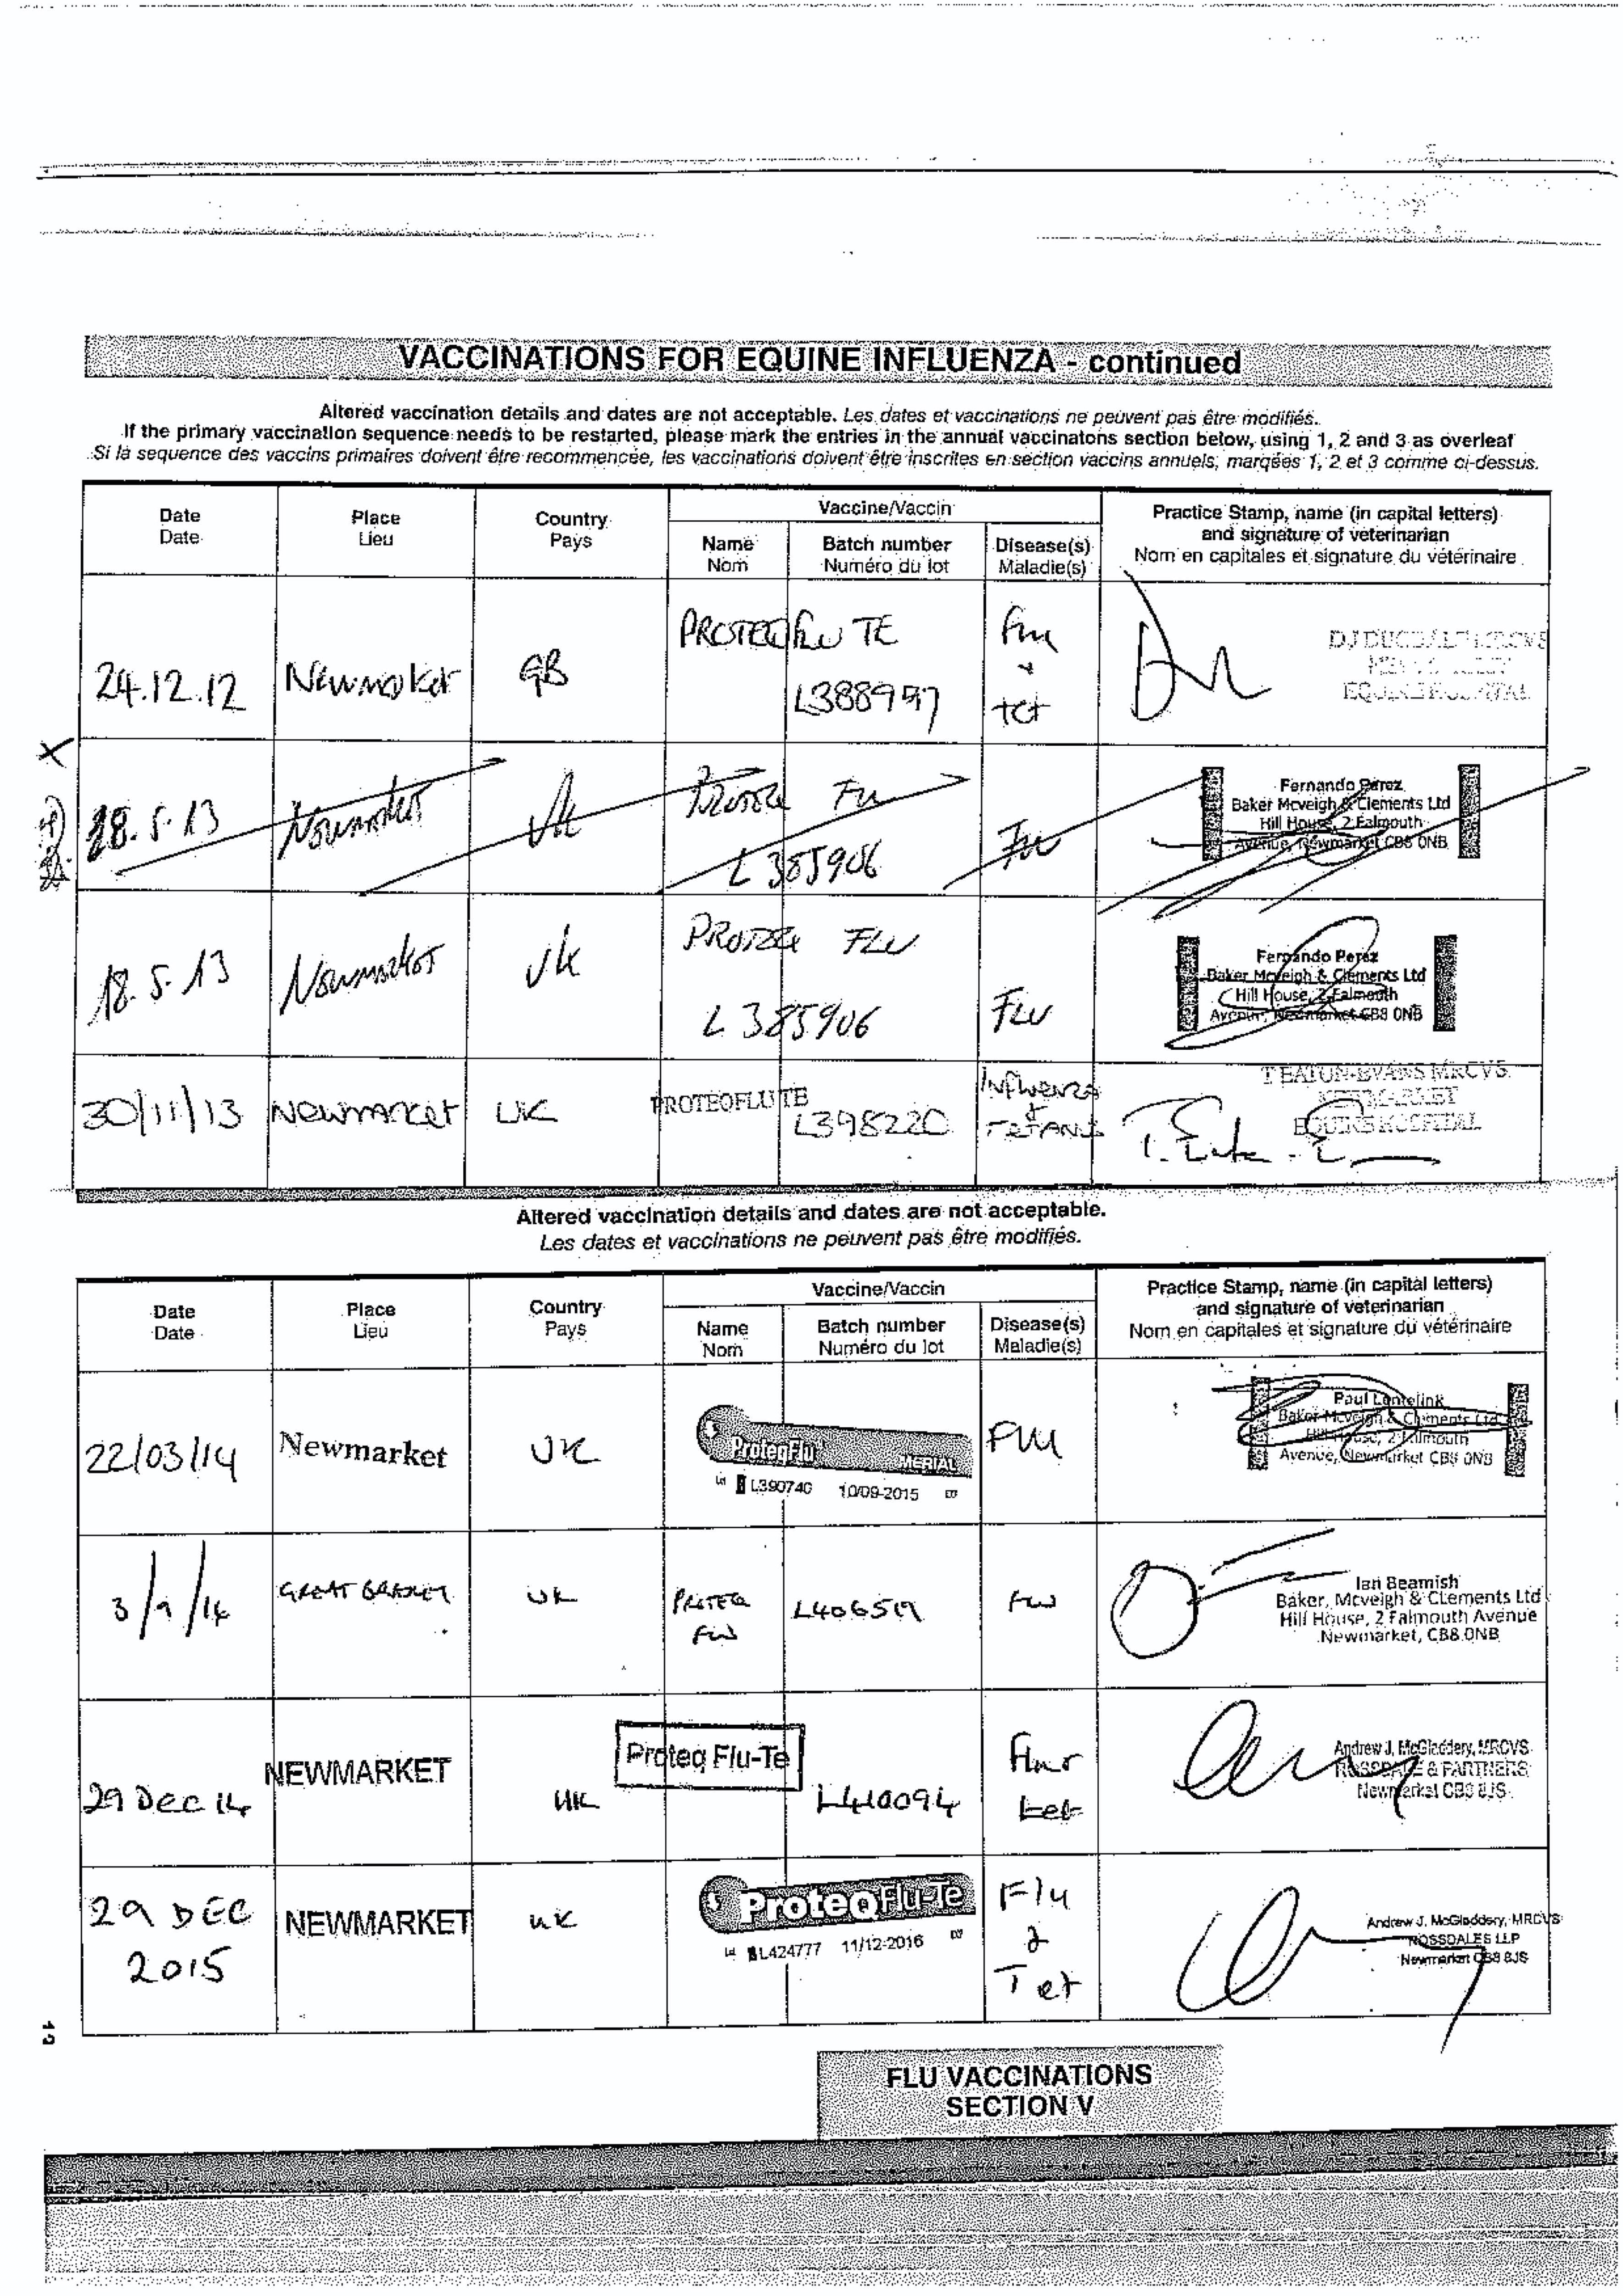 VACCINATIONS FOR EQUINE INFLUENZA - continued
Altered vaccination details and dates are not acceptable. Les dates et vaccinations ne peuvent pas être modifiés.
If the primary vaccination sequence needs to be restarted, please mark the entries in the annual vaccinatons section below, using 1, 2 and 3 as overleaf
Si la sequence des vaccins primaires doivent être recommencée, les vaccinations doivent être inscrites en section vaccins annuels, marqées 1, 2 et 3 comme ci-dessus.
Date Place Country Vaccine/Vaccin Practice Stamp, name (in capital letters)
Date Lieu Pays Name Batch number Disease(s) and signature of veterinarian
Nom Numéro du lot Maladie(s) Nom en capitales et signature du vétérinaire
24.12.12 Newmarket GB PROTEQ FLU TE Flu + tet
L388997
EQUINE HOSPITAL
X
28.5.13 Newmarket UK Proteq Flu Flu
L385906
Fernando Perez
Baker Mcveigh & Clements Ltd
Hill House, 2 Falmouth
Avenue, Newmarket CB8 0NB
18.5.13 Newmarket UK PROTEQ FLU
L385906 FLU
Fernando Perez
Baker Mcveigh & Clements Ltd
Hill House, 2 Falmouth
Avenue, Newmarket CB8 0NB
30/11/13 NEWMARKET UK PROTEQFLUTE L398220 INFLUENZA & TETANUS
T EATON-EVANS MRCVS
NEWMARKET
EQUINE HOSPITAL
Altered vaccination details and dates are not acceptable.
Les dates et vaccinations ne peuvent pas être modifiés.
Date Place Country Vaccine/Vaccin Practice Stamp, name (in capital letters)
Date Lieu Pays Name Batch number Disease(s) and signature of veterinarian
Nom Numéro du lot Maladie(s) Nom en capitales et signature du vétérinaire
22/03/14 Newmarket UK ProteqFlu MERIAL Flu
Lot L390740 10/09-2015 EXP
Paul Lentelink
Baker Mcveigh & Clements Ltd
Hill House, 2 Falmouth
Avenue, Newmarket CB8 0NB
3/9/14 GREAT BRADLEY UK PROTEQ FLU FLU
Ian Beamish
Baker, Mcveigh & CLements Ltd
Hill House, 2 Falmouth Avenue
Newmarket, CB8 0NB
29 Dec 14 NEWMARKET UK Proteq Flu-Te L410094 Flu + tet
Andrew J. McGladdery, MRCVS
ROSSDALE & PARTNERS
Newmarket CB8 8JS
29 DEC 2015 NEWMARKET UK ProteqFlu-Te Flu & Tet
Lot L424777 11/12-2016 EXP
Andrew J. McGladdery, MRCVS
ROSSDALES LLP
Newmarket CB8 8JS
FLU VACCINATIONS
SECTION V